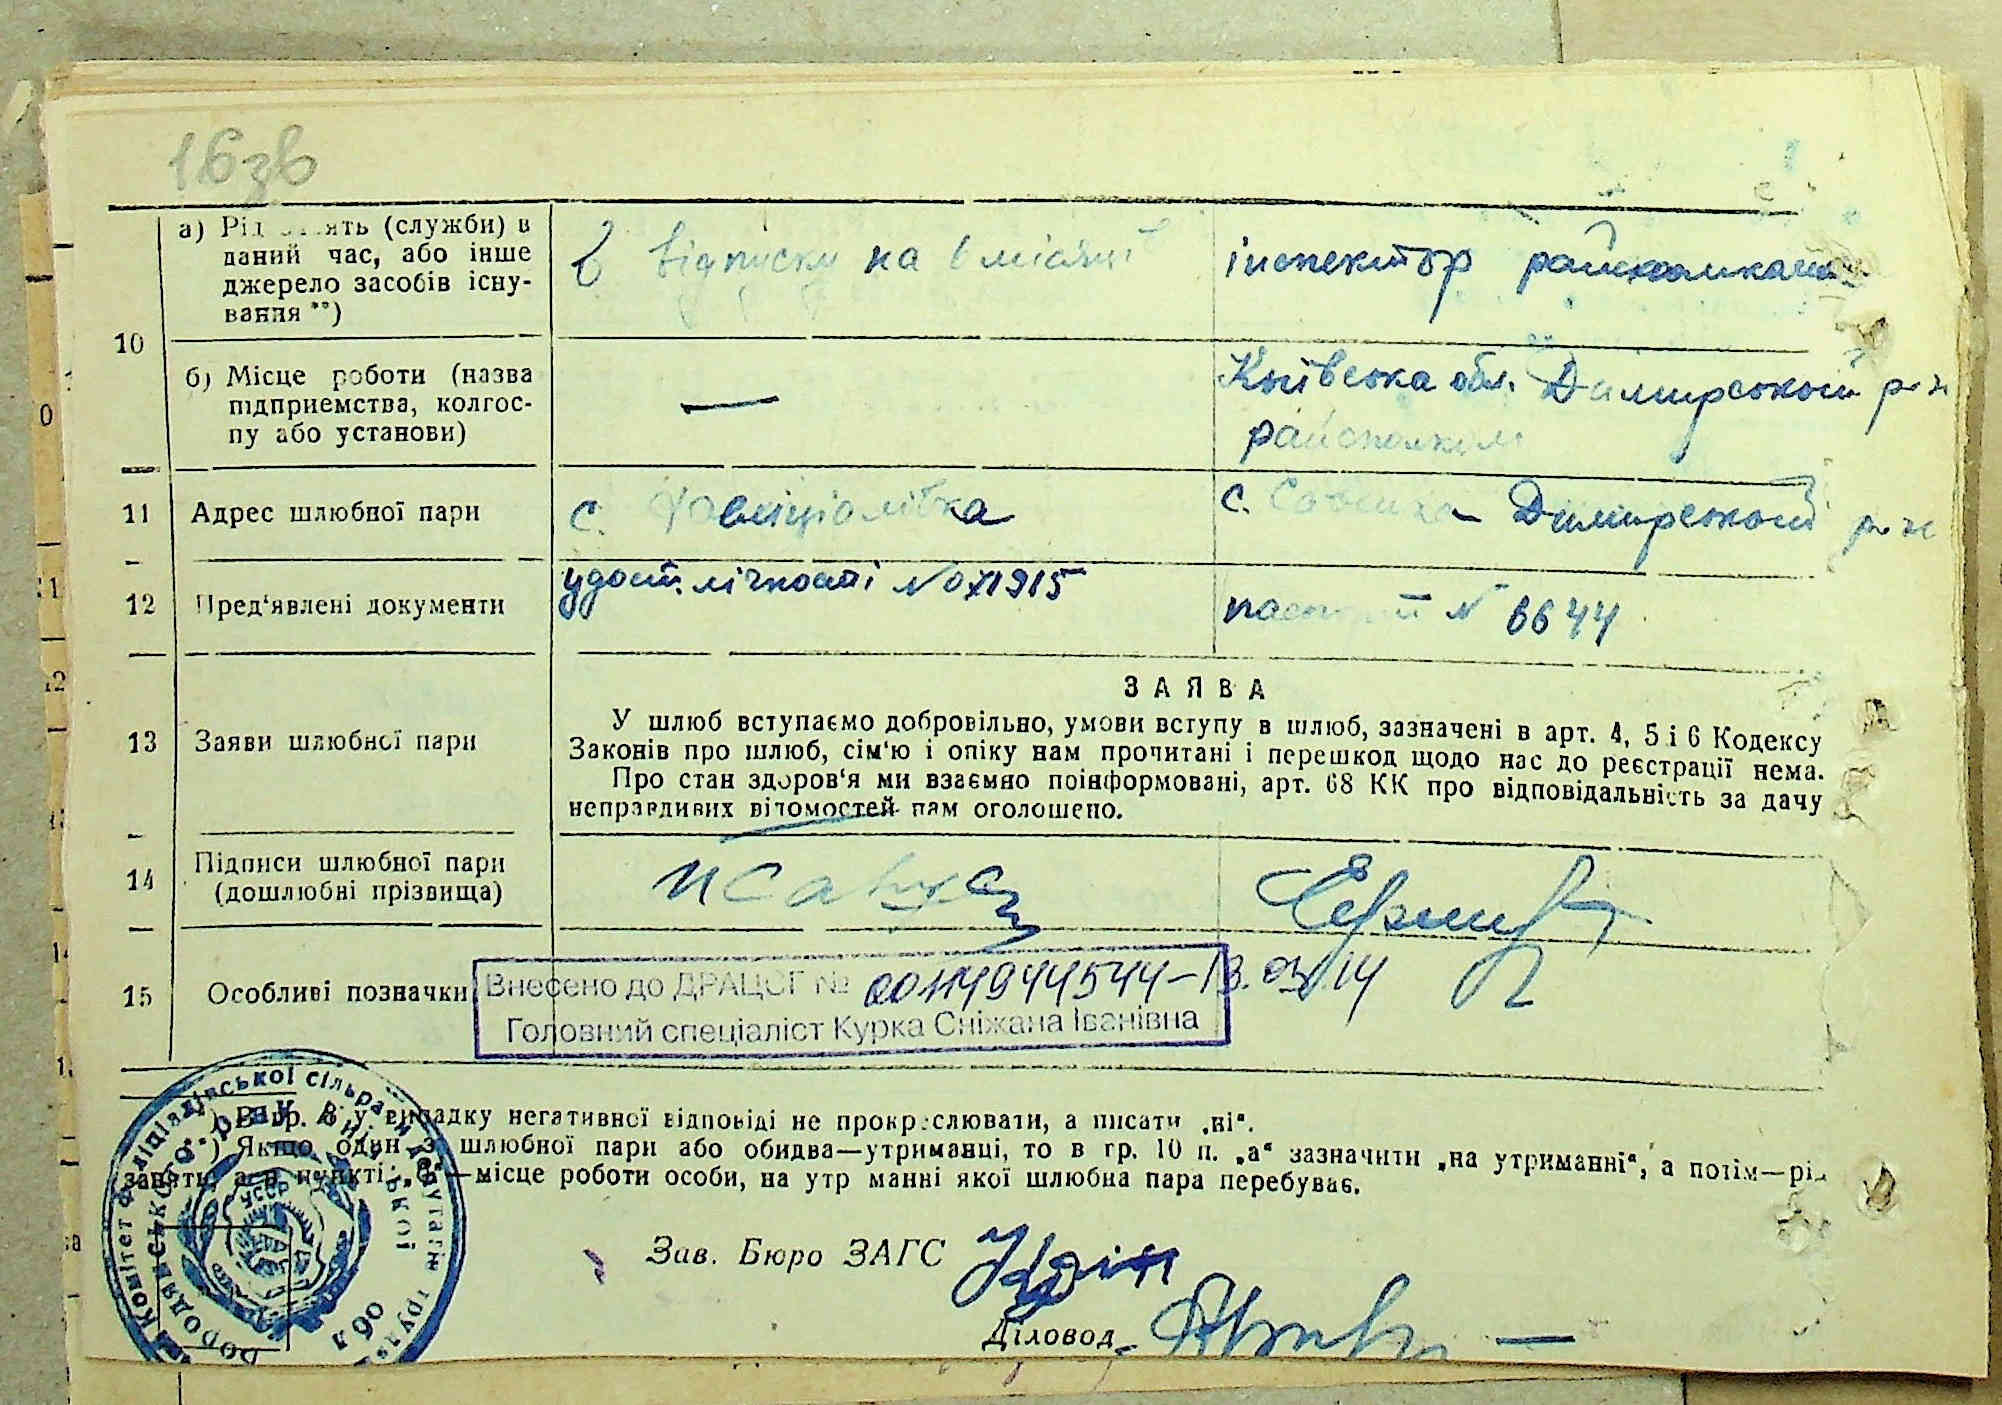 16зв
а) Рід занять (служби) в
даний час, або інше
джерело засобів існу-
вання **)
в відпуску на 6 місяців
інспектор
10
б) Місце роботи (назва
підприємства, колгос-
пу або установи)
—
Київська обл. Димирський р-н
райвиконком
11 Адрес шлюбної пари
с.
с. Димирський р-н
12 Пред'явлені документи
удост. лічності №071915
паспорт № 6644
ЗАЯВА
13 Заяви шлюбної пари
У шлюб вступаємо добровільно, умови вступу в шлюб, зазначені в арт. 4, 5 і 6 Кодексу
Законів про шлюб, сім'ю і опіку нам прочитані і перешкод щодо нас до реєстрації нема.
Про стан здоров'я ми взаємно поінформовані, арт. 68 КК про відповідальність за дачу
неправдивих відомостей нам оголошено.
14 Підписи шлюбної пари
(дошлюбні прізвища)
15 Особливі позначки
Внесено до ДРАЦСГ № 00114944544-13.03.14
Головний спеціаліст Курка Сніжана Іванівна
*) В гр. 8 у випадку негативної відповіді не прокреслювати, а писати „ні“.
**) Якщо один з шлюбної пари або обидва—утриманці, то в гр. 10 п. „а“ зазначити „на утриманні“, а потім—рід
занять, а в пункті „б“—місце роботи особи, на утриманні якої шлюбна пара перебуває.
Зав. Бюро ЗАГС
Діловод